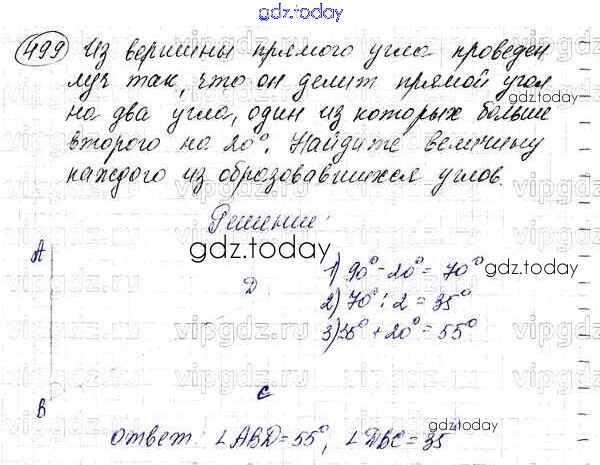 gdz.today
499 Из вершины прямого угла проведен
луч так, что он делит прямой угол
gdz.today
на два угла, один из которых больше
второго на 20°. Найдите величину
каждого из образовавшихся углов.
vipgdz.ru vipgdz.ru vipgdz.ru
Решение:
A
gdz.today
1) 90° - 20° = 70°
gdz.today
D
2) 70° : 2 = 35°
vipgdz.ru vipgdz.ru vipgdz.ru
3) 35° + 20° = 55°
vipgdz.ru vipgdz.ru vipgdz.ru
B
C
vipgdz.ru vipgdz.ru vipgdz.ru
ответ: ∠ABD=55°, ∠DBC=35